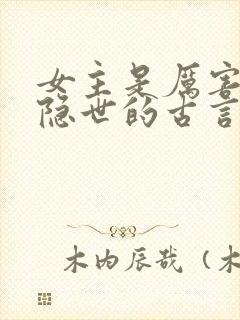 女主是厉害
隐世的古言
木内辰哉（木